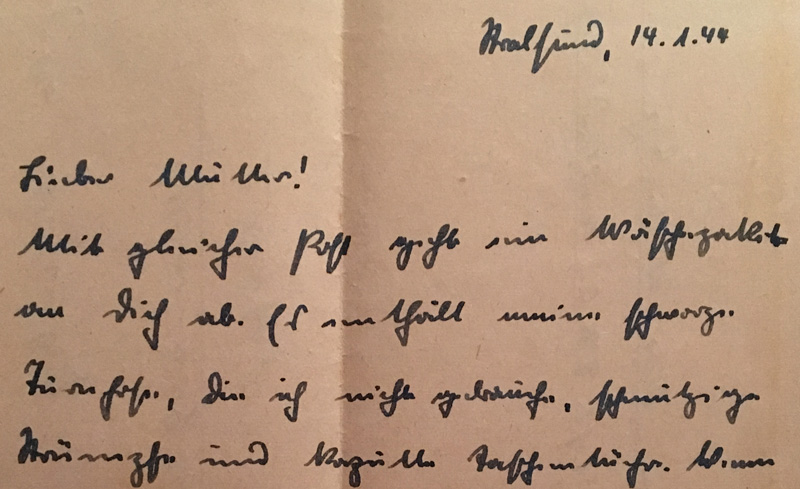 Stralsund, 14.1.44
Liebe Mutter!
Mit gleicher Post geht ein Wäschepaket
an Dich ab. Es enthält meine schwarze
Turnhose, die ich nicht gebrauche, schmutzige
Strümpfe und kaputte Taschentücher. Wenn